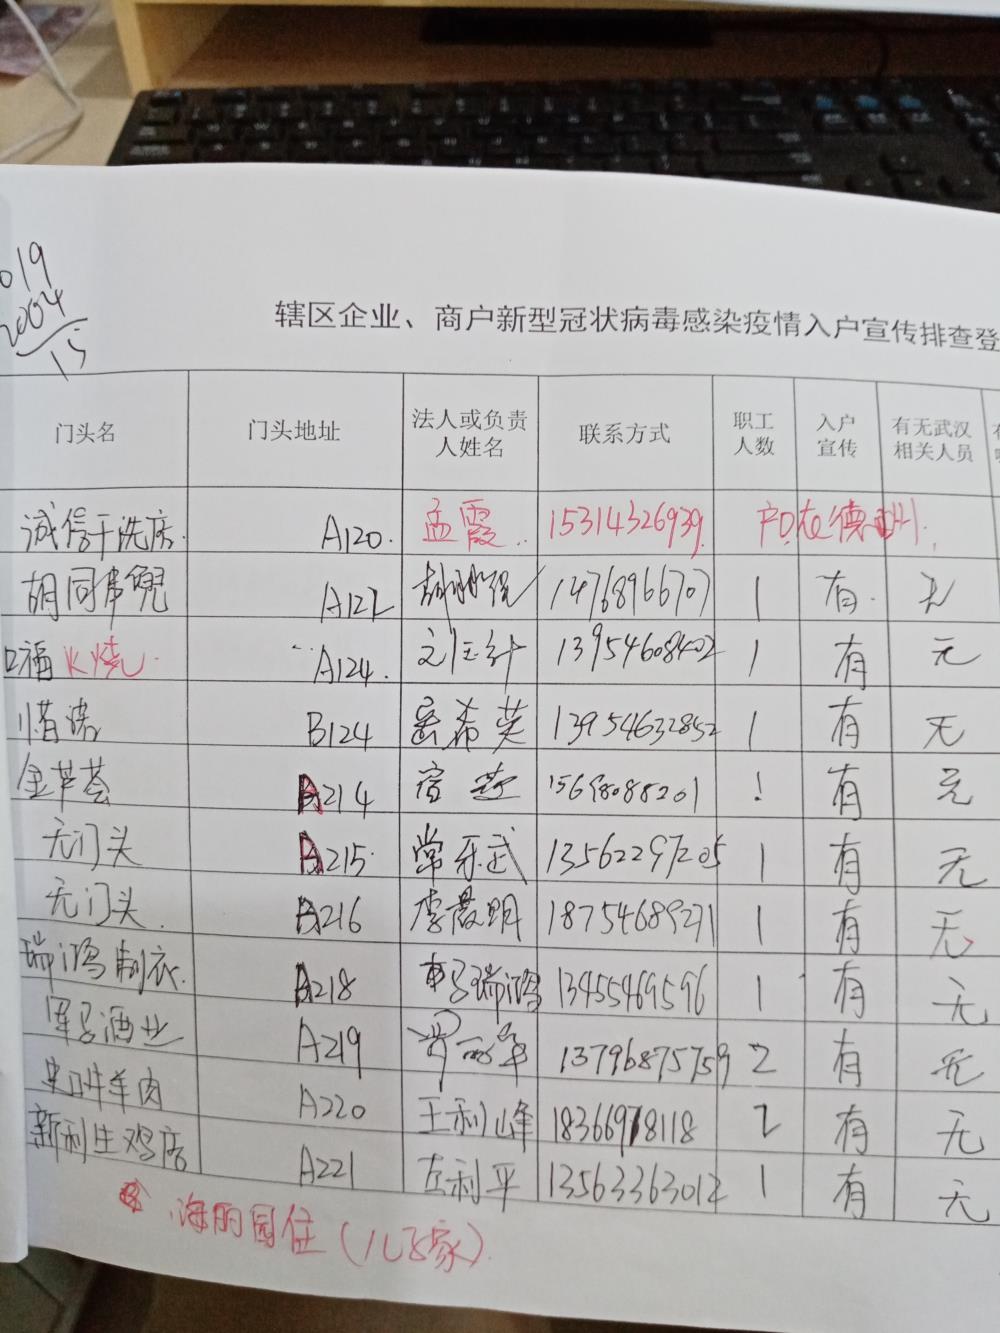 019
2004
15
辖区企业、商户新型冠状病毒感染疫情入户宣传排查登
门头名 门头地址 法人或负责人姓名 联系方式 职工人数 入户宣传 有无武汉相关人员
诚信干洗店. A120. 孟霞. 15314326939. 户口在德州.
胡同串 A122 胡 14768966707 1 有. 无
口福火烧. A124. 13954608402 1 有 无
惜诺 B124 希芙 13954632852 1 有 无
金芦荟 A214 宿燕 15698088201 1 有 无
无门头 A215. 常乐武 13562297205 1 有 无
无门头. A216 李 明 18754689271 1 有 无
瑞鸿制衣. A218 瑞鸿 13455469596 1 有 无
军子酒业 A219 军 13796875759 2 有 无
牛羊肉 A220 王利峰 18366978118 2 有 无
新利生鸡店 A221 左利平 13563363012 1 有 无
海丽园住(儿子家).